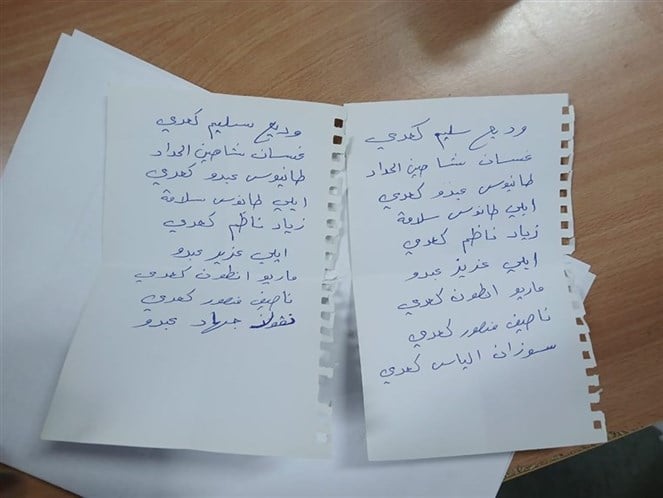 وديع سليم كعدي
غسان شاهين الحداد
طانيوس عبدو كعدي
ايلي طانوس سلامة
زياد ناظم كعدي
ايلي عزيز عبدو
ماريو انطون كعدي
ناصيف منصور كعدي
نقولا جهاد عبدو
وديع سليم كعدي
غسان شاهين الحداد
طانيوس عبدو كعدي
ايلي طانوس سلامة
زياد ناظم كعدي
ايلي عزيز عبدو
ماريو انطون كعدي
ناصيف منصور كعدي
سوزان الياس كعدي